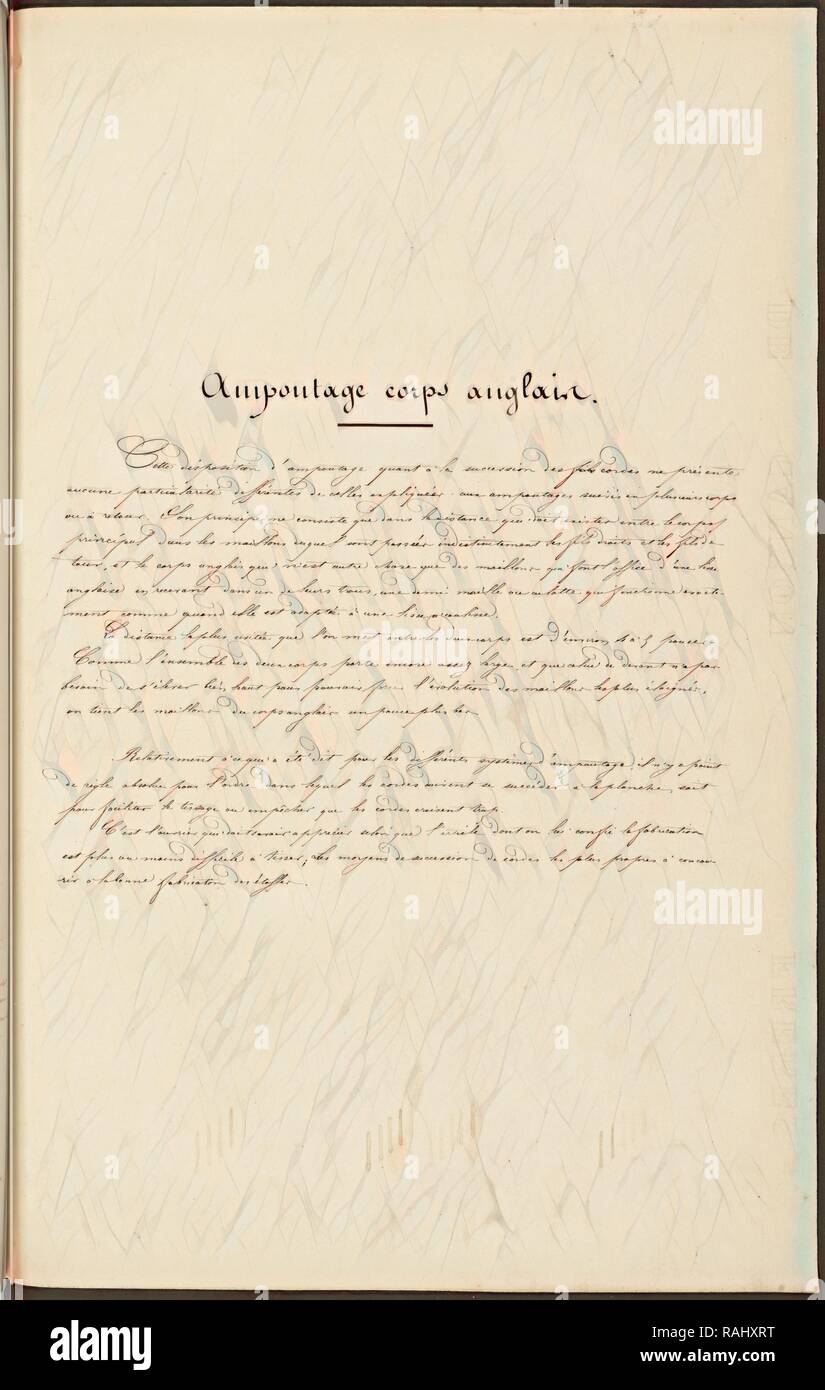 Ampoutage corps anglais.
Cette disposition d'ampoutage quant à la succession des fils cordes ne présente
aucune particularité différentes de celles expliquées aux ampoutages suivis en plusieurs corps
ou à retour. Son principe ne consiste que dans la distance qui doit exister entre le corps
principal dans les maillons duquel sont passés indistinctement les fils droits et les fils de
tour, et le corps anglais qui n'est autre chose que des maillons qui font l'office d'une lisse
anglaise en recevant dans un de leurs trous, une demi maille ou culotte qui fonctionne exacte-
ment comme quand elle est adaptée à une lisse
La distance la plus usitée que l'on met entre les deux corps est d'environ 4 à 5 pouces.
Comme l'ensemble des deux corps porte encore assez large et que celui de devant n'a pas
besoin de s'élever bien haut l'évolution des maillons les plus éloignés,
on tient les maillons du corps anglais un pouce plus bas
Relativement à ce qui a été dit pour les différents systèmes d'ampoutage il n'y a point
de règle absolue pour l'ordre dans lequel les cordes doivent se succéder à la planche, soit
pour faciliter le tissage ou empêcher que les cordes croisent trop.
C'est l'ouvrier qui doit savoir apprécier selon que l'article dont on lui confie la fabrication
est plus ou moins difficile à tisser, les moyens de succession de cordes les plus propres à concou-
rir à la bonne fabrication des étoffes.
alamy
alamy
alamy
alamy
Image ID: RAHXRT
www.alamy.com